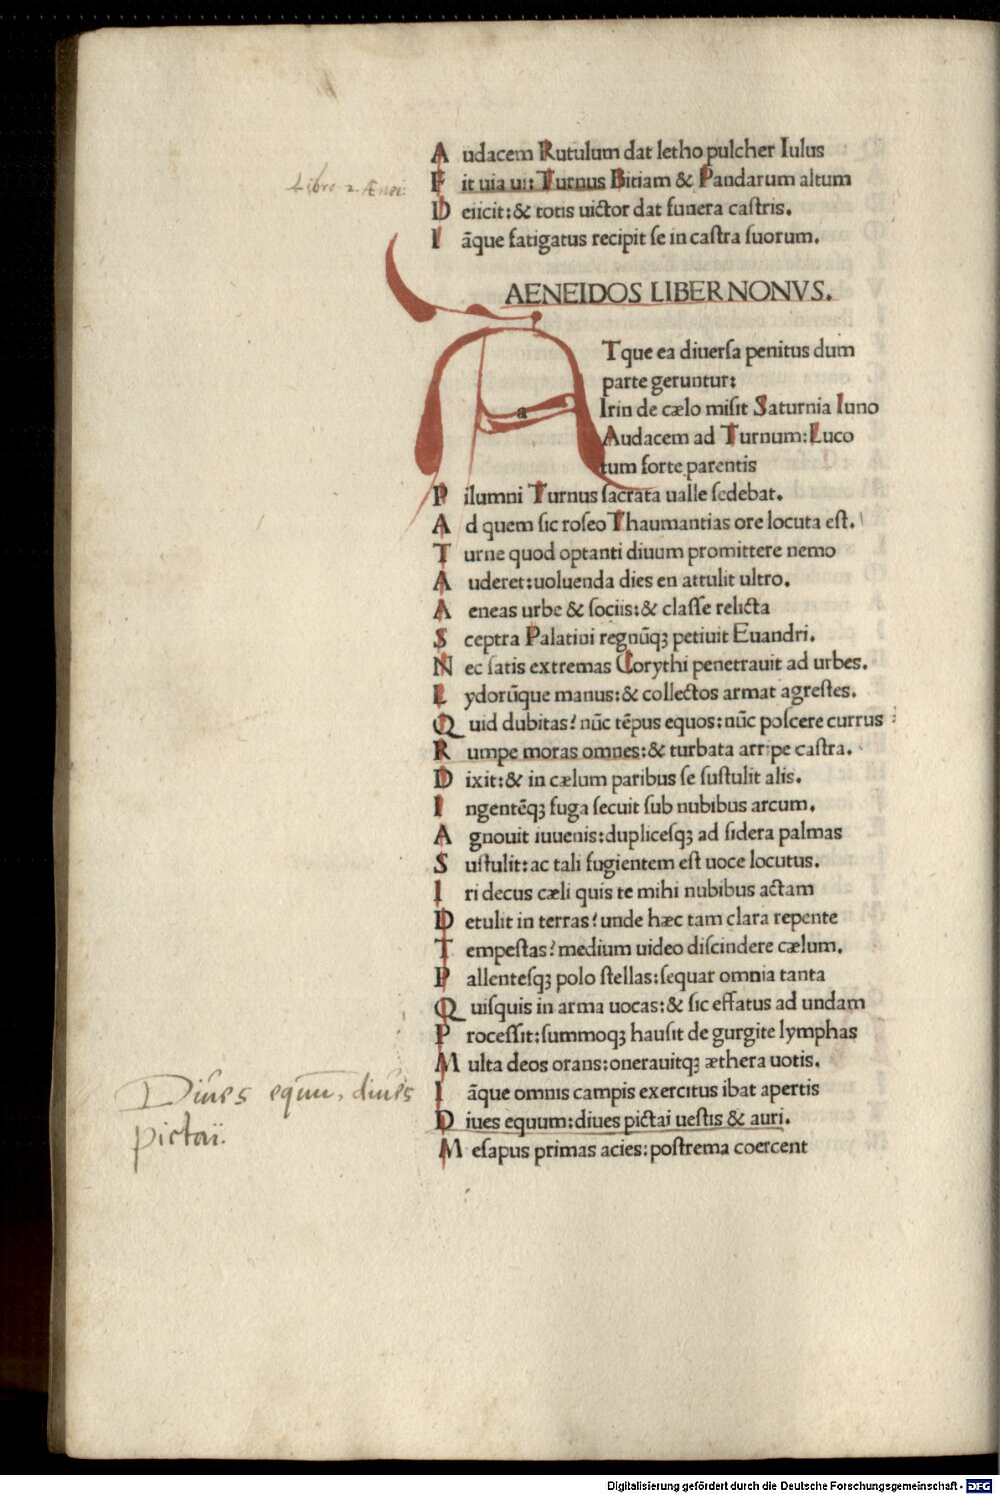 Audacem Rutulum dat letho pulcher Iulus
Libro 2. Ænei
Fit uia ui: Turnus Bitiam & Pandarum altum
Deiicit: & totis uictor dat funera castris.
Iāque fatigatus recipit se in castra suorum.
AENEIDOS LIBER NONVS.
a
ATque ea diuersa penitus dum
parte geruntur:
Irin de cælo misit Saturnia Iuno
Audacem ad Turnum: Luco
tum forte parentis
Pilumni Turnus sacrata ualle sedebat.
Ad quem sic roseo Thaumantias ore locuta est.
Turne quod optanti diuum promittere nemo
Auderet: uoluenda dies en attulit ultro.
Aeneas urbe & sociis: & classe relicta
Sceptra Palatini regnūqꝫ petiuit Euandri.
Nec satis extremas Corythi penetrauit ad urbes.
Lydorūque manus: & collectos armat agrestes.
Quid dubitas? nūc tēpus equos: nūc poscere currus
Rumpe moras omnes: & turbata arripe castra.
Dixit: & in cælum paribus se sustulit alis.
Ingentēqꝫ fuga secuit sub nubibus arcum.
Agnouit iuuenis: duplicesqꝫ ad sidera palmas
Sustulit: ac tali fugientem est uoce locutus.
Iri decus cæli quis te mihi nubibus actam
Detulit in terras? unde hæc tam clara repente
Tempestas? medium uideo discindere cælum.
Pallentesqꝫ polo stellas: sequar omnia tanta
Quisquis in arma uocas: & sic effatus ad undam
Processit: summoqꝫ hausit de gurgite lymphas
Multa deos orans: onerauitqꝫ æthera uotis.
Iāque omnis campis exercitus ibat apertis
Diues equum: diues pictai uestis & auri.
Mesapus primas acies: postrema coercent
Diues equum, diues
pictaï.
Digitalisierung gefördert durch die Deutsche Forschungsgemeinschaft - DFG